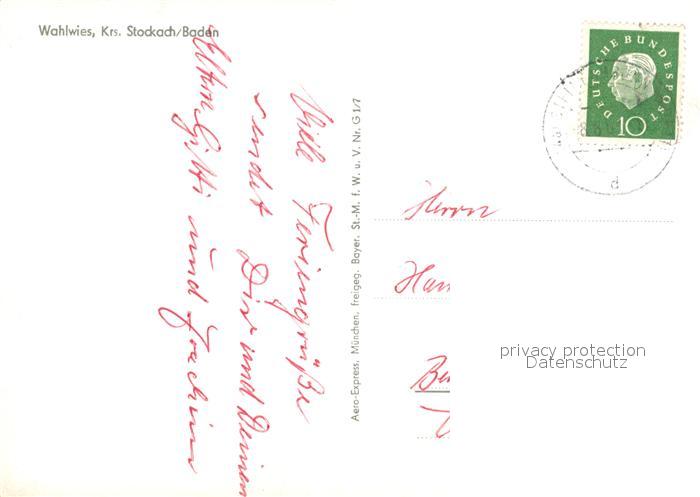 Wahlwies, Krs. Stockach/Baden
Viele Feriengrüße
sendet Dir und Deinen
Eltern Gitti und Joachim
Aero-Express, München, freigeg. Bayer. St.-M. f. W. u. V. Nr. G 1/7
DEUTSCHE BUNDESPOST
10
d
Herrn
privacy protection
Datenschutz